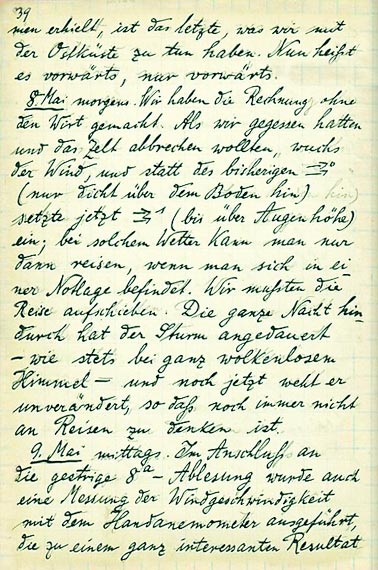 39
men erhielt, ist das letzte, was wir mit
der Ostküste zu tun haben. Nun heißt
es vorwärts, nur vorwärts.
8. Mai morgens. Wir haben die Rechnung ohne
den Wirt gemacht. Als wir gegessen hatten
und das Zelt abbrechen wollten, wuchs
der Wind, und statt des bisherigen
(nur dicht über dem Boden hin)
setzte jetzt (bis über Augenhöhe)
ein; bei solchem Wetter kann man nur
dann reisen, wenn man sich in ei-
ner Notlage befindet. Wir mußten die
Reise aufschieben. Die ganze Nacht hin-
durch hat der Sturm angedauert
– wie stets bei ganz wolkenlosem
Himmel – und noch jetzt weht er
unverändert, so daß noch immer nicht
an Reisen zu denken ist.
9. Mai mittags. Im Anschluß an
die gestrige 8a – Ablesung wurde auch
eine Messung der Windgeschwindigkeit
mit dem Handanemometer ausgeführt,
die zu einem ganz interessanten Resultat